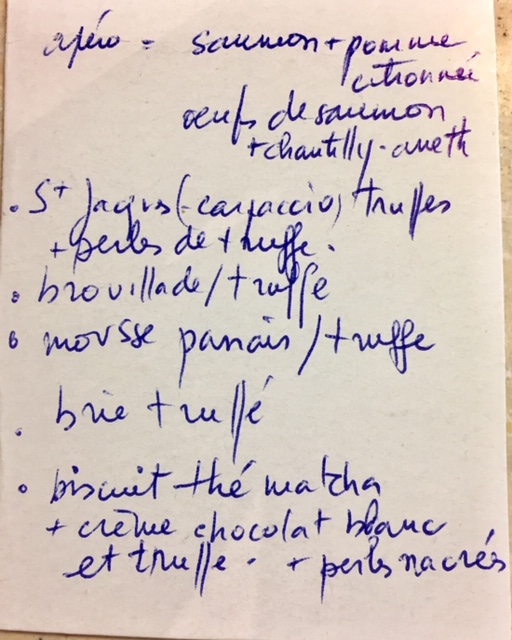 apéro = saumon + pomme
citronnée
oeufs de saumon
+ chantilly-aneth
. St Jaques (-carpaccio) truffes
+ perles de truffe.
. brouillade/truffe
. mousse panais/truffe
. brie truffé
. biscuit thé matcha
+ crème chocolat blanc
et truffe. + perles nacrés